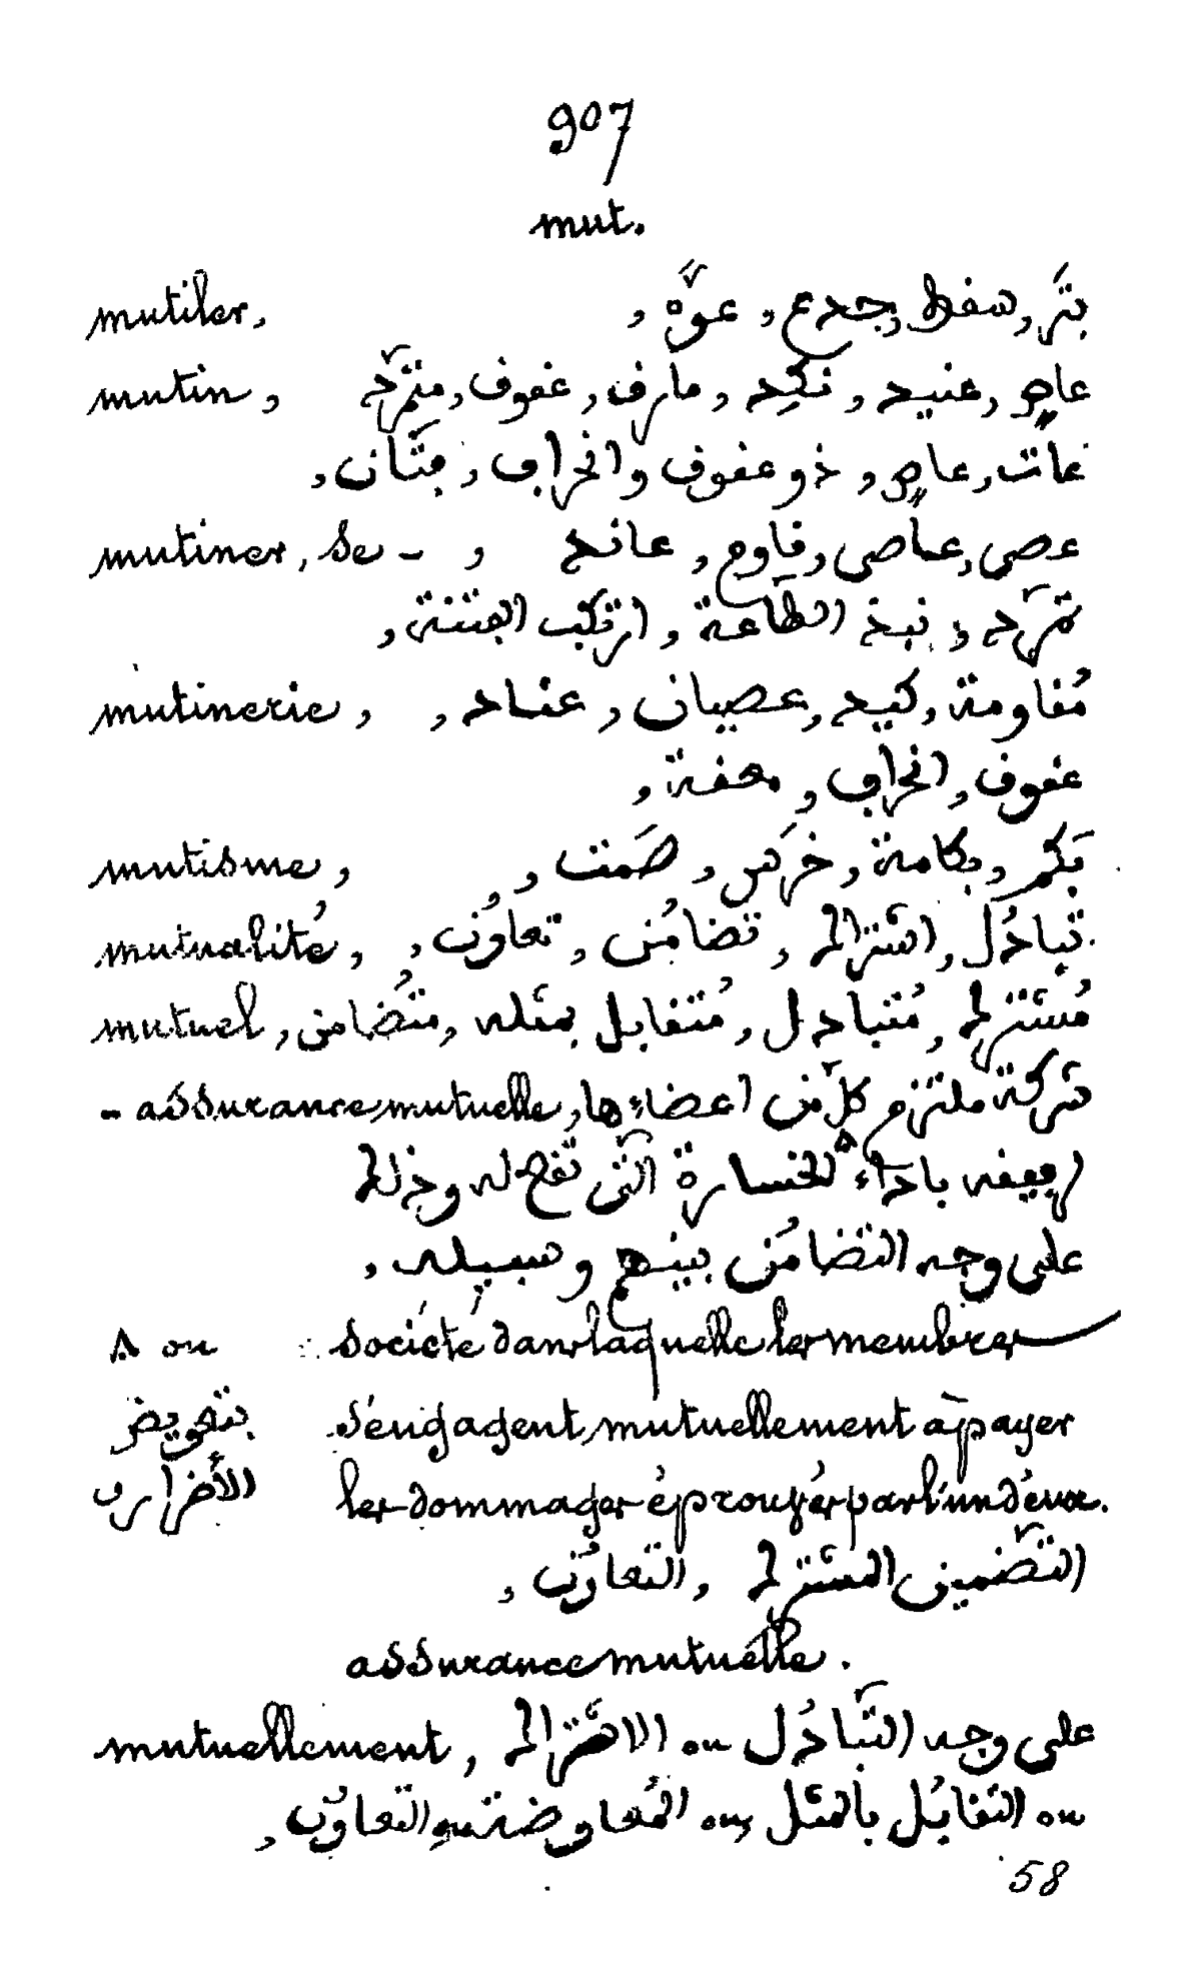 907
mut.
mutiler, بتَّر, سقط, جدع, عوَّه,
mutin, عاصٍ, عنيد, نكِد, مارق, عقوق, متمرّد,
عات, عاصٍ, ذو عقوق وانحراف, فتّان,
mutiner, se -, عصى, عاصى, قاوم, عاند
تمرّد, نبذ الطاعة, ارتكب الفتنة,
mutinerie, مُقاومة, كيد, عصيان, عناد,
عقوق, انحراف,
mutisme, بَكَم, بكامة, خرَس, صَمت,
mutualité, تبادُل, اشتراك, تضامُن, تعاوُن,
mutuel, مُشترك, مُتبادل, مُتقابل بمثله, متضامن,
- assurance mutuelle, شركة ملتزم كلّ من اعضاءها
لرفيقه باداء ^ الخسارة الّتى تقع له وذلك
على وجه التضامُن بينهم وسبيله,
société dans laquelle les membres
s'engagent mutuellement à payer
les dommages éprouvés par l'un d'eux.
^ ou
بتعويض
الأضرار
التضمين المشترك, التعاوُن,
assurance mutuelle.
mutuellement, على وجه التّبادُل ou الاشتراك
ou التقابُل بالمثل ou المُعاوضة التعاوُن,
58